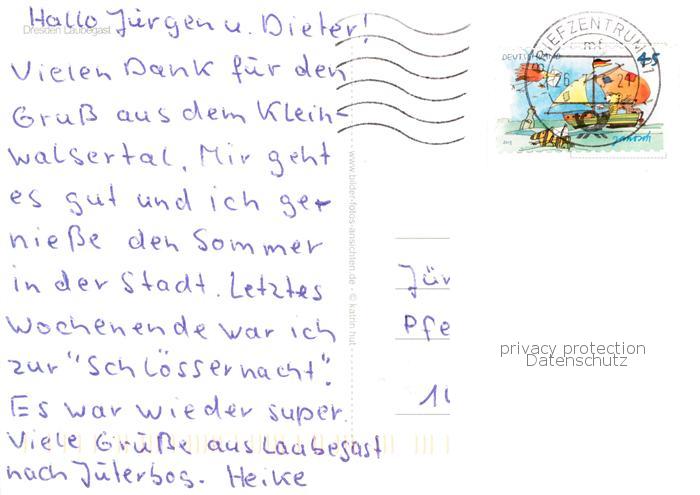 Hallo Jürgen u. Dieter!
Dresden Laubegast
Vielen Dank für den
Gruß aus dem Klein-
walsertal. Mir geht
es gut und ich ge-
nieße den Sommer
in der Stadt. Letztes
Wochenende war ich
zur "Schlössernacht".
Es war wieder super.
Viele Grüße aus Laubegast
nach Jüterbog. Heike
www.bilder-fotos-ansichten.de © katrin hut
BRIEFZENTRUM
mt
DEUTSCHLAND
45
janosch
Jür
Pfe
privacy protection
Datenschutz